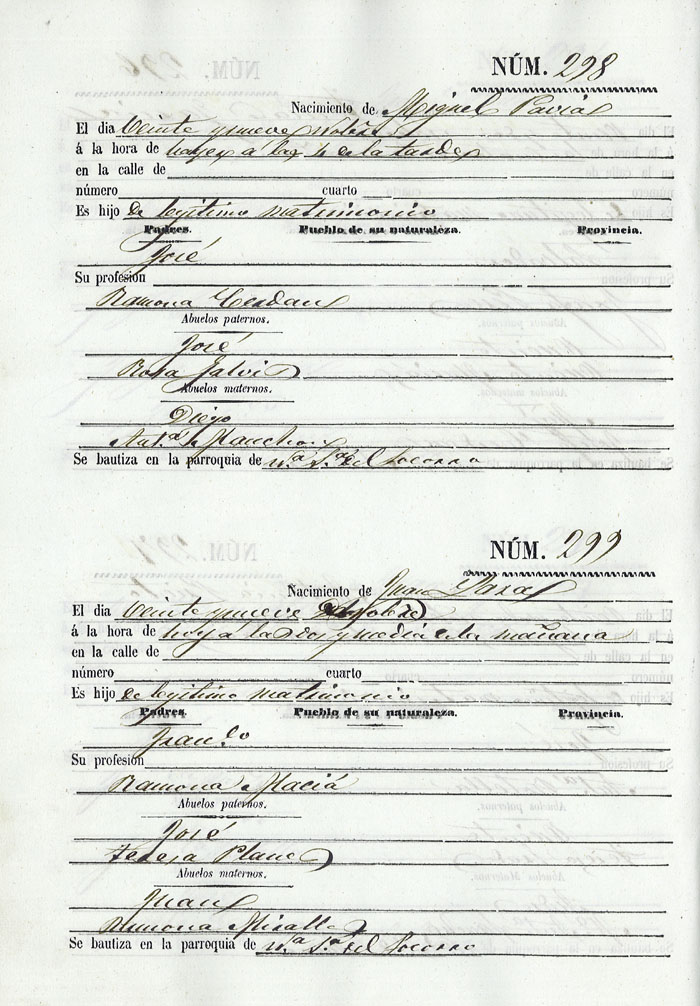 NÚM. 298
Nacimiento de Miguel Pavia
El dia Veinte y nueve Octubre
á la hora de hayer a las 4 de la tarde
en la calle de
número cuarto
Es hijo de legitimo matrimonio
Padres. Pueblo de su naturaleza. Provincia.
José
Su profesión
Ramona Cerdan
Abuelos paternos.
José
Rosa Galvis
Abuelos maternos.
Diego
Ant.ª Manchon
Se bautiza en la parroquia de N.ª S.ª del Socorro
NÚM. 299
Nacimiento de Juan
El dia Veinte y nueve Octubre
á la hora de hoy a las dos y media de la mañana
en la calle de
número cuarto
Es hijo de legitimo matrimonio
Padres. Pueblo de su naturaleza. Provincia.
Fran.co
Su profesión
Ramona Maciá
Abuelos paternos.
José
Teresa Planes
Abuelos maternos.
Juan
Ramona Miralles
Se bautiza en la parroquia de N.ª S.ª del Socorro